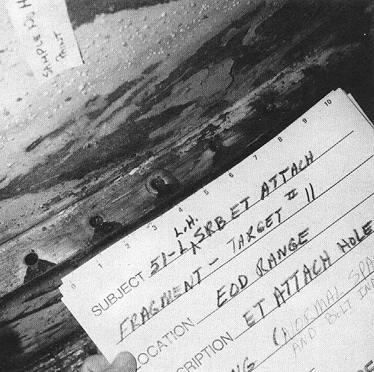 SAMPLE
PAINT
0 1 2 3 4 5 6 7 8 9 10
SUBJECT 51-L L.H. SRB ET ATTACH
FRAGMENT - TARGET # 11
LOCATION EOD RANGE
CRIPTION ET ATTACH HOLE
NG (NORMAL SPA
AND BOLT IND